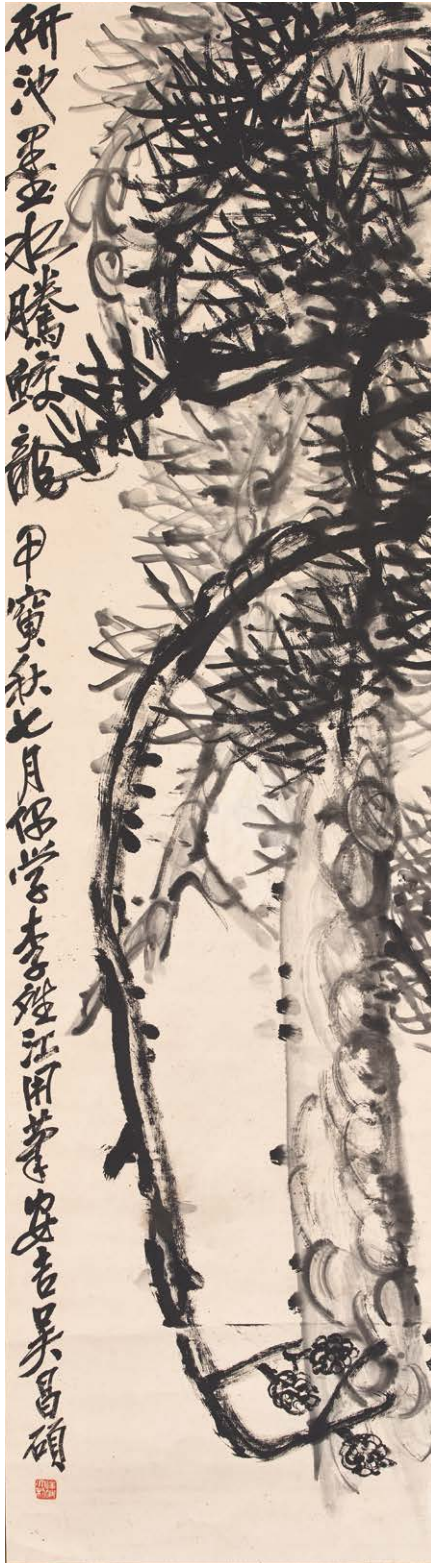 研池墨水騰鮫龍 甲寅秋七月偶学李晴江用筆安吉吴昌碩